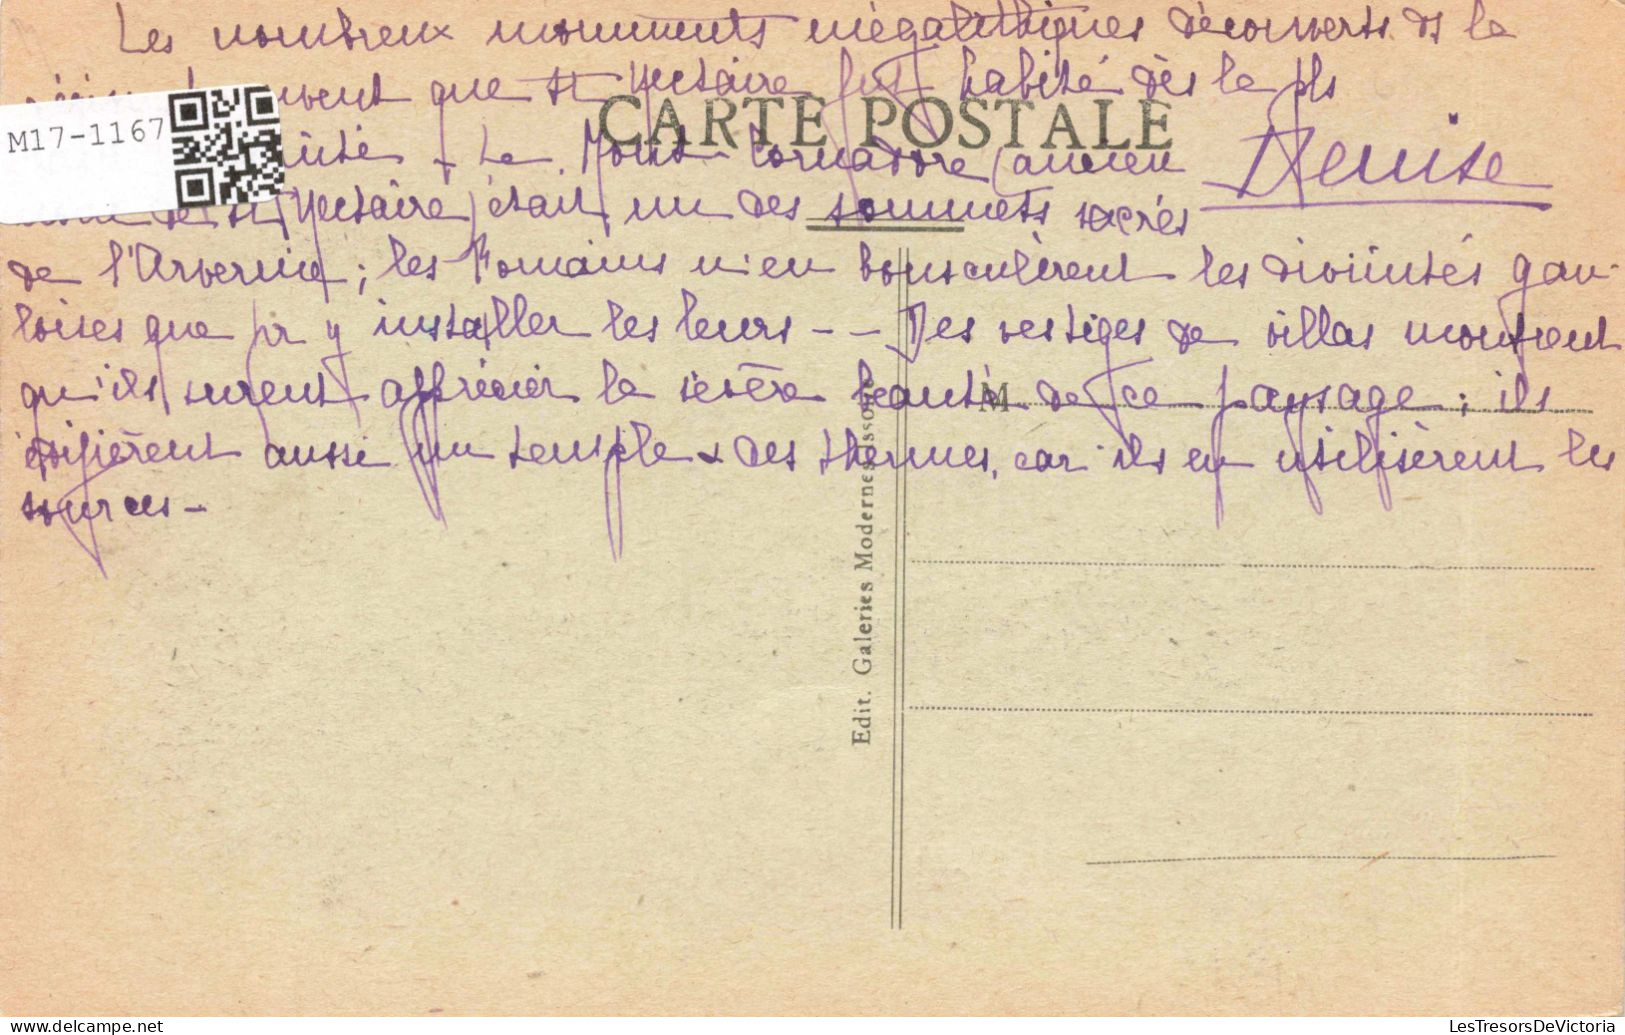 Les nombreux monuments mégalithiques découverts ds la
que St Nectaire fut habité dès la pls
CARTE POSTALE
M17-1167
Le Mont Cornadore (ancien
Denise
St Nectaire) était un des sommets sacrés
de l'Arvernie ; les Romains n'en bousculèrent les divinités gau-
loises que pr y installer les leurs - - Des vestiges de villas montrent
qu'ils surent apprécier la sévère beauté de ce paysage ; ils
M
édifièrent aussi un temple & des thermes, car ils en utilisèrent les
sources -
Edit. Galeries Modernes
LesTresorsDeVictoria
www.delcampe.net